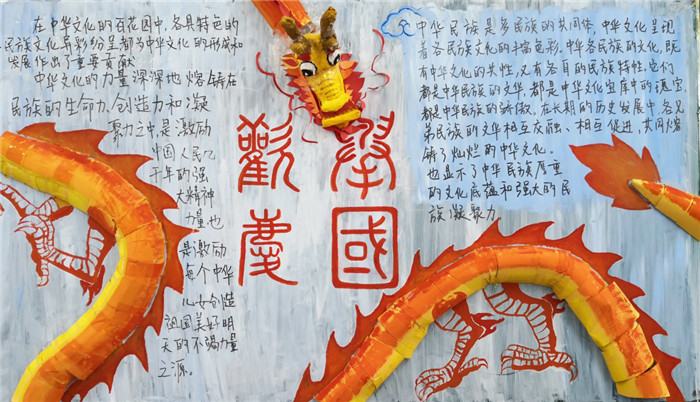 在中华文化的百花园中，各具特色的
民族文化异彩纷呈都为中华文化的形成和
发展作出了重要贡献
中华文化的力量深深地熔铸在
民族的生命力、创造力和凝
聚力之中，是激励
中国人民几
千年的强
大精神
力量也
是激励
每个中华
儿女创造
祖国美好明
天的不竭力量
之源。
舉國
歡慶
中华民族是多民族的共同体，中华文化呈现
着各民族文化的丰富色彩。中华各民族的文化，既
有中华文化的共性，又有各自的民族特性。它们
都是中华民族的文华，都是中华文化宝库中的瑰宝，
都是中华民族的骄傲，在长期的历史发展中各兄
弟民族的文华相互交融、相互促进，共同熔
铸了灿烂的中华文化。
也显示了中华民族厚重
的文化底蕴和强大的民
族凝聚力